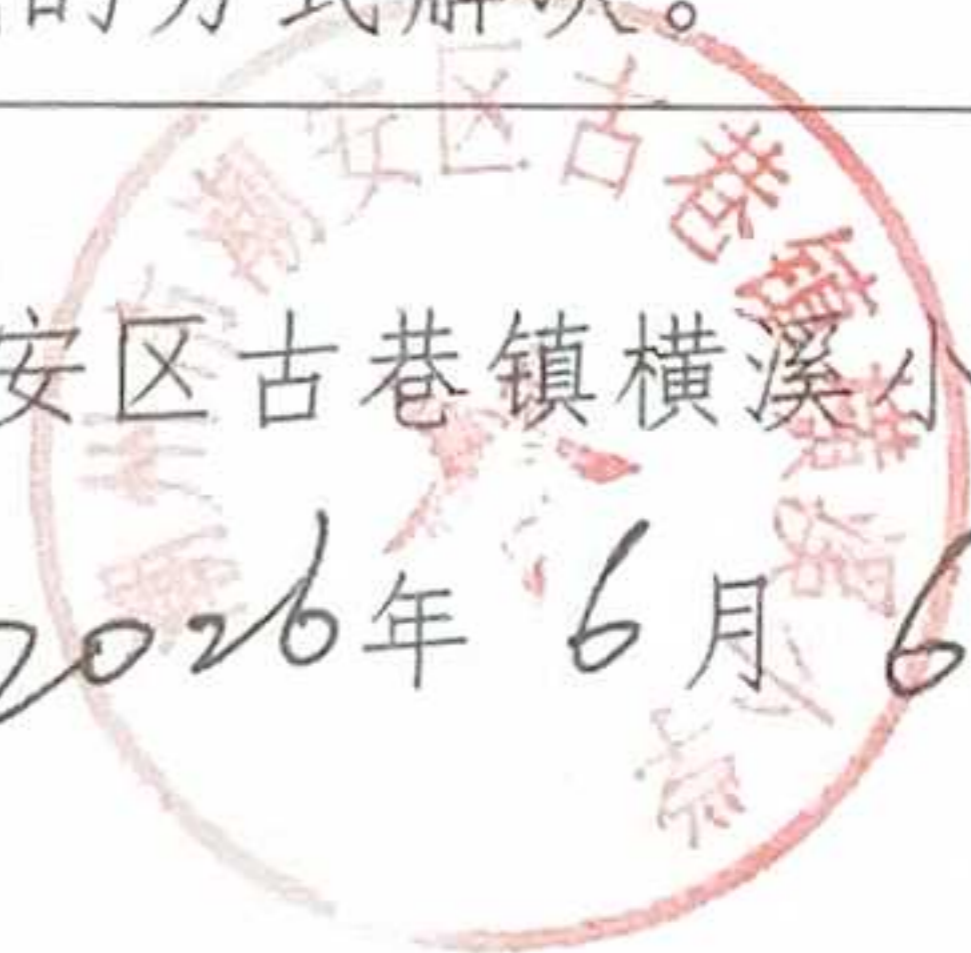 的方式解决。
安区古巷镇横溪小
2026年 6月 6
潮州市潮安区古巷镇横溪小学